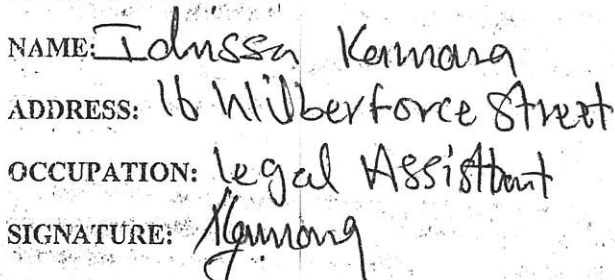 NAME: Idrissa Kamara
ADDRESS: 16 Wilberforce Street
OCCUPATION: Legal Assistant
SIGNATURE: Kamara